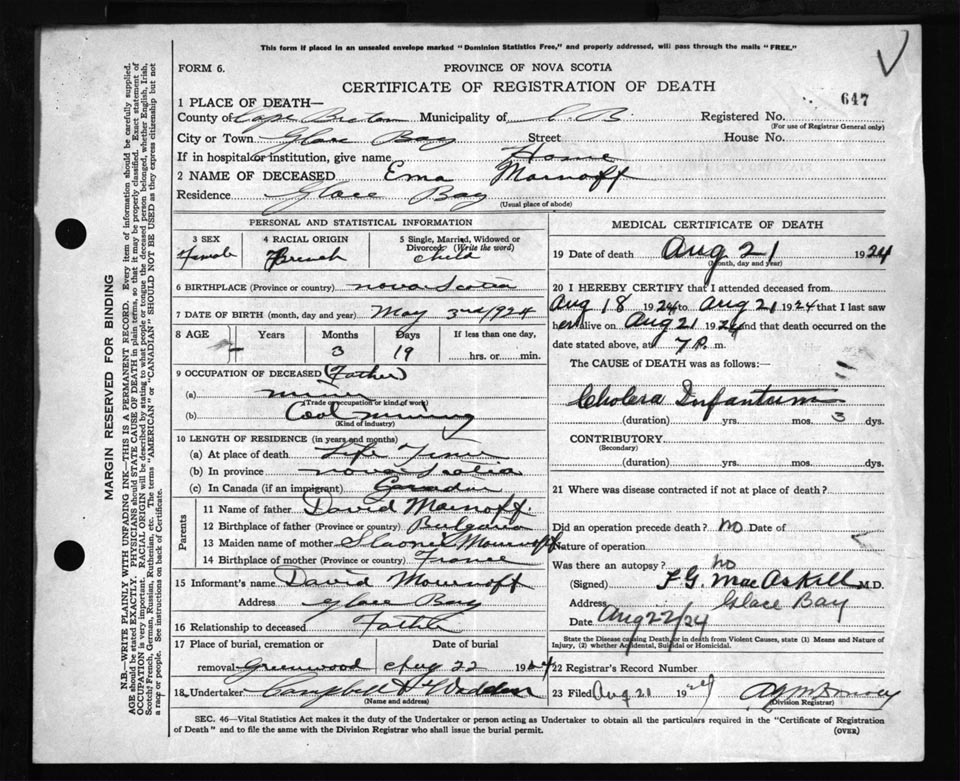 This form if placed in an unsealed envelope marked "Dominion Statistics Free," and properly addressed, will pass through the mails "FREE."
FORM 6.
PROVINCE OF NOVA SCOTIA
CERTIFICATE OF REGISTRATION OF DEATH
647
1 PLACE OF DEATH—
County of Cape Breton Municipality of C. B. Registered No.
(For use of Registrar General only)
City or Town Glace Bay Street House No.
If in hospital or institution, give name Home
2 NAME OF DECEASED Ema Mournoff
Residence Glace Bay
(Usual place of abode)
PERSONAL AND STATISTICAL INFORMATION
3 SEX Female
4 RACIAL ORIGIN French
5 Single, Married, Widowed or Divorced (Write the word) Child
6 BIRTHPLACE (Province or country) Nova Scotia
7 DATE OF BIRTH (month, day and year) May 3rd 1924
8 AGE Years Months 3 Days 19
If less than one day, hrs. or min.
9 OCCUPATION OF DECEASED (Father)
(a) Miner
(Trade, occupation or kind of work)
(b) Coal Mining
(Kind of industry)
10 LENGTH OF RESIDENCE (in years and months)
(a) At place of death Life Time
(b) In province Nova Scotia
(c) In Canada (if an immigrant) Canadian
Parents
11 Name of father David Mournoff
12 Birthplace of father (Province or country) Bulgaria
13 Maiden name of mother Mournoff
14 Birthplace of mother (Province or country) France
15 Informant's name David Mournoff
Address Glace Bay
16 Relationship to deceased Father
17 Place of burial, cremation or Date of burial
removal Greenwood Aug 22 1924
18 Undertaker Campbell & Wedden
(Name and address)
MEDICAL CERTIFICATE OF DEATH
19 Date of death Aug 21 1924
(Month, day and year)
20 I HEREBY CERTIFY that I attended deceased from
Aug 18 1924 to Aug 21 1924 that I last saw
her alive on Aug 21 1924 and that death occurred on the
date stated above, at 7 P. m.
The CAUSE OF DEATH was as follows:
Cholera Infantum
(duration) yrs. mos. 3 days
CONTRIBUTORY
(Secondary)
(duration) yrs. mos. days
21 Where was disease contracted if not at place of death?
Did an operation precede death? no Date of
Nature of operation
Was there an autopsy? no
(Signed) F G MacAskill M.D.
Address Glace Bay
Date Aug 22/24
State the Disease causing Death, or in death from Violent Causes, state (1) Means and Nature of
Injury, (2) whether Accidental, Suicidal or Homicidal.
22 Registrar's Record Number
23 Filed Aug 21 1924
(Division Registrar)
SEC. 46—Vital Statistics Act makes it the duty of the Undertaker or person acting as Undertaker to obtain all the particulars required in the "Certificate of Registration
of Death" and to file the same with the Division Registrar who shall issue the burial permit.
(OVER)
MARGIN RESERVED FOR BINDING
N.B.—WRITE PLAINLY WITH UNFADING INK—THIS IS A PERMANENT RECORD. Every item of information should be carefully supplied.
AGE should be stated EXACTLY. PHYSICIANS should STATE CAUSE OF DEATH in plain terms, so that it may be properly classified. Exact statement of
OCCUPATION is very important. RACIAL ORIGIN will be described by stating to what people or tongue the deceased person belonged, whether English, Irish,
Scotch, French, German, Russian, Ruthenian, etc. The terms "AMERICAN" or "CANADIAN" SHOULD NOT BE USED as they express citizenship but not
a race or people. See instructions on back of Certificate.